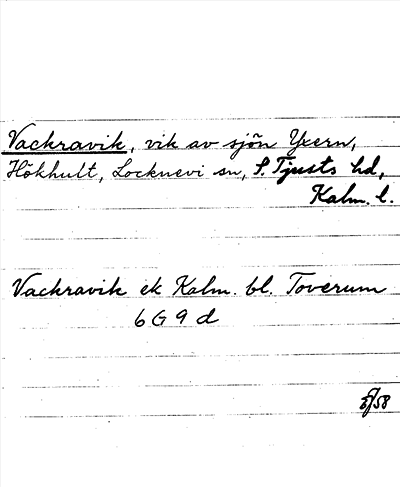 Vackravik, vik av sjön Yxern,
Hökhult, Locknevi sn, S. Tjusts hd,
Kalm. l.
Vackravik ek Kalm. bl. Toverum
6 G 9 d
/58